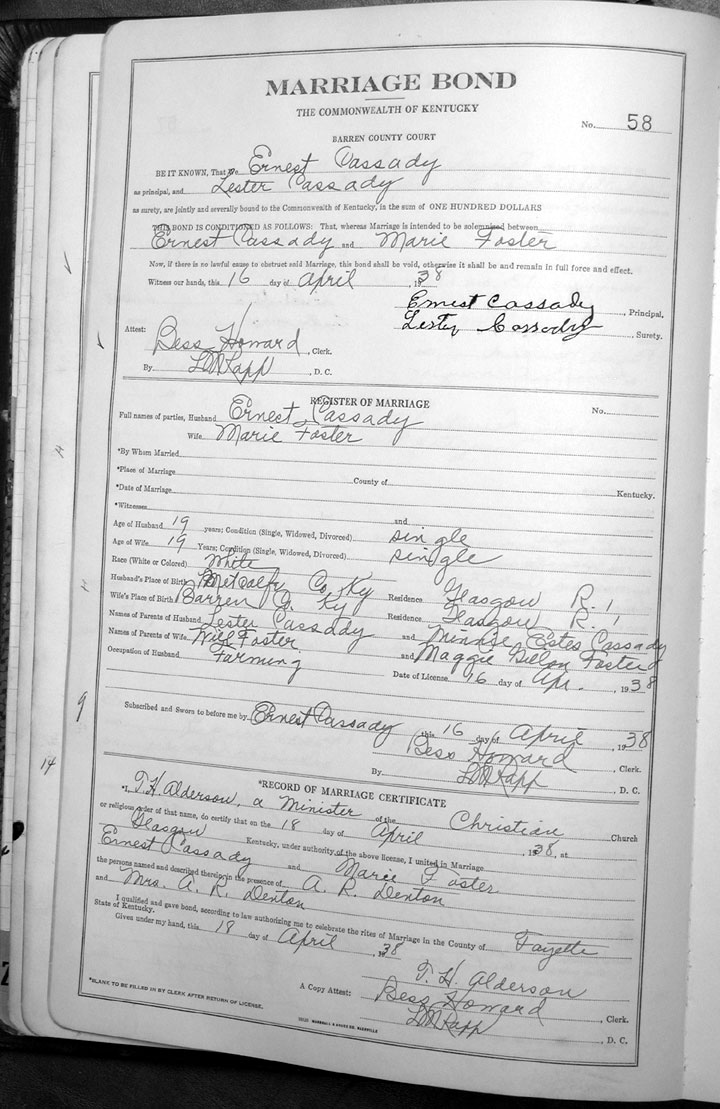 MARRIAGE BOND
THE COMMONWEALTH OF KENTUCKY
No. 58
BARREN COUNTY COURT
BE IT KNOWN, That we Ernest Cassady
as principal, and Lester Cassady
as surety, are jointly and severally bound to the Commonwealth of Kentucky, in the sum of ONE HUNDRED DOLLARS
THIS BOND IS CONDITIONED AS FOLLOWS: That, whereas Marriage is intended to be solemnized between
Ernest Cassady and Marie Foster
Now, if there is no lawful cause to obstruct said Marriage, this bond shall be void, otherwise it shall be and remain in full force and effect.
Witness our hands, this 16 day of April, 1938
Ernest Cassady, Principal.
Lester Cassady, Surety.
Attest:
Bess Howard, Clerk.
By , D. C.
REGISTER OF MARRIAGE
No.
Full names of parties, Husband Ernest Cassady
Wife Marie Foster
*By Whom Married
*Place of Marriage County of Kentucky.
*Date of Marriage
*Witnesses and
Age of Husband 19 years; Condition (Single, Widowed, Divorced) single
Age of Wife 19 Years; Condition (Single, Widowed, Divorced) single
Race (White or Colored) White
Husband's Place of Birth Metcalfe Co Ky Residence Glasgow R. 1
Wife's Place of Birth Barren Co. Ky Residence Glasgow R. 1
Names of Parents of Husband Lester Cassady and Minnie Estes Cassady
Names of Parents of Wife Will Foster and Maggie Foster
Occupation of Husband Farming
Date of License 16 day of Apr. 1938
Subscribed and Sworn to before me by Ernest Cassady this 16 day of April, 1938
Bess Howard, Clerk.
By , D. C.
*RECORD OF MARRIAGE CERTIFICATE
*I, T. H. Alderson, a Minister of the Christian Church
or religious order of that name, do certify that on the 18 day of April 1938, at
Glasgow Kentucky, under authority of the above license, I united in Marriage
Ernest Cassady and Marie Foster
the persons named and described therein, in the presence of A. R. Denton
and Mrs. A. R. Denton
I qualified and gave bond, according to law authorizing me to celebrate the rites of Marriage in the County of Fayette
State of Kentucky.
Given under my hand, this 18 day of April, 1938
T. H. Alderson
A Copy Attest: Bess Howard, Clerk.
, D. C.
*BLANK TO BE FILLED IN BY CLERK AFTER RETURN OF LICENSE.
9
14